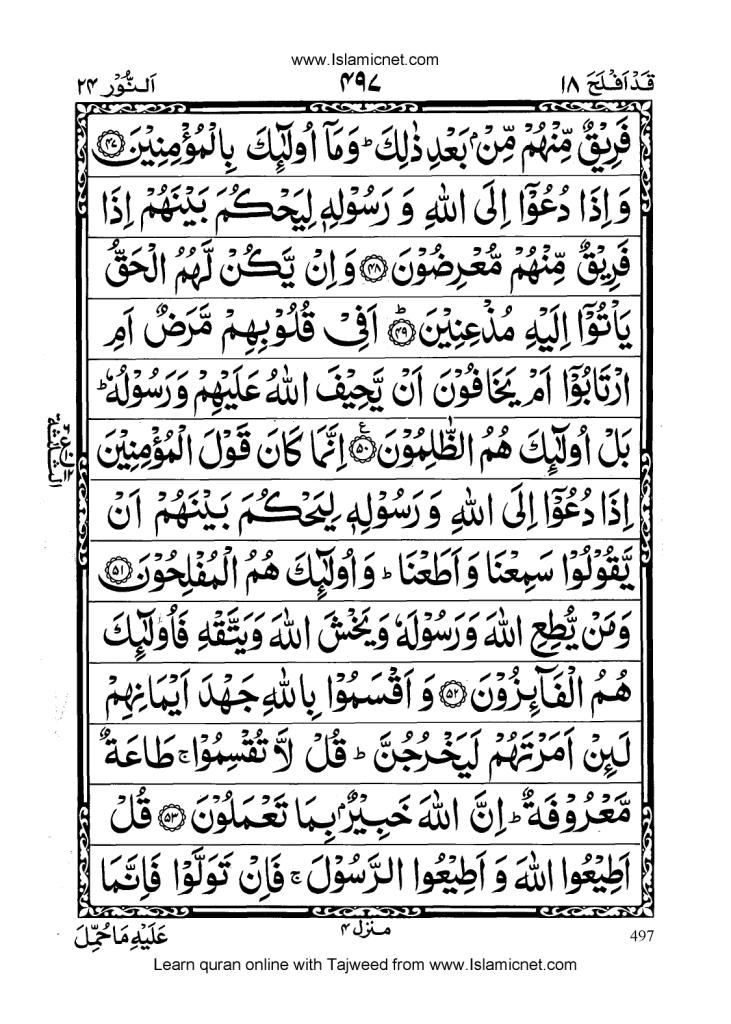 www.Islamicnet.com
قَدْ اَفْلَحَ ۱۸
۴۹۷
اَلنُّوْر ۲۴
فَرِیْقٌ مِّنْهُمْ مِّنْۢ بَعْدِ ذٰلِكَ ؕ وَمَاۤ اُولٰٓئِكَ بِالْمُؤْمِنِیْنَ ۴۷
وَ اِذَا دُعُوْۤا اِلَی اللّٰهِ وَ رَسُوْلِهٖ لِیَحْكُمَ بَیْنَهُمْ اِذَا
فَرِیْقٌ مِّنْهُمْ مُّعْرِضُوْنَ ۴۸ وَ اِنْ یَّكُنْ لَّهُمُ الْحَقُّ
یَاْتُوْۤا اِلَیْهِ مُذْعِنِیْنَ ؕ ۴۹ اَفِیْ قُلُوْبِهِمْ مَّرَضٌ اَمِ
ارْتَابُوْۤا اَمْ یَخَافُوْنَ اَنْ یَّحِیْفَ اللّٰهُ عَلَیْهِمْ وَ رَسُوْلُهٗ ؕ
بَلْ اُولٰٓئِكَ هُمُ الظّٰلِمُوْنَ ۵۰ ع اِنَّمَا كَانَ قَوْلَ الْمُؤْمِنِیْنَ
اِذَا دُعُوْۤا اِلَی اللّٰهِ وَ رَسُوْلِهٖ لِیَحْكُمَ بَیْنَهُمْ اَنْ
یَّقُوْلُوْا سَمِعْنَا وَ اَطَعْنَا ؕ وَ اُولٰٓئِكَ هُمُ الْمُفْلِحُوْنَ ۵۱
وَمَنْ یُّطِعِ اللّٰهَ وَ رَسُوْلَهٗ وَ یَخْشَ اللّٰهَ وَ یَتَّقْهِ فَاُولٰٓئِكَ
هُمُ الْفَآئِزُوْنَ ۵۲ وَ اَقْسَمُوْا بِاللّٰهِ جَهْدَ اَیْمَانِهِمْ
لَئِنْ اَمَرْتَهُمْ لَیَخْرُجُنَّ ؕ قُلْ لَّا تُقْسِمُوْا ۚ طَاعَةٌ
مَّعْرُوْفَةٌ ؕ اِنَّ اللّٰهَ خَبِیْرٌۢ بِمَا تَعْمَلُوْنَ ۵۳ قُلْ
اَطِیْعُوا اللّٰهَ وَ اَطِیْعُوا الرَّسُوْلَ ۚ فَاِنْ تَوَلَّوْا فَاِنَّمَا
عَلَیْهِ مَا حُمِّلَ
منزل ۴
497
Learn quran online with Tajweed from www.Islamicnet.com